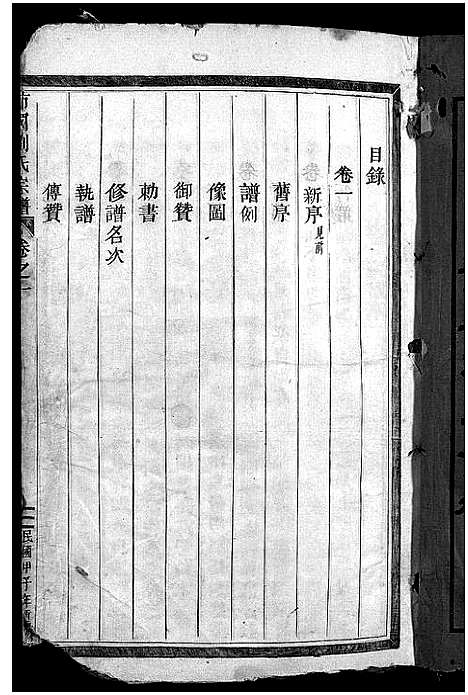 目錄
卷一
新序見前
舊序
譜例
像圖
御贊
勅書
修譜名次
執譜
傳贊
劉氏宗譜 卷之一
民國甲子年